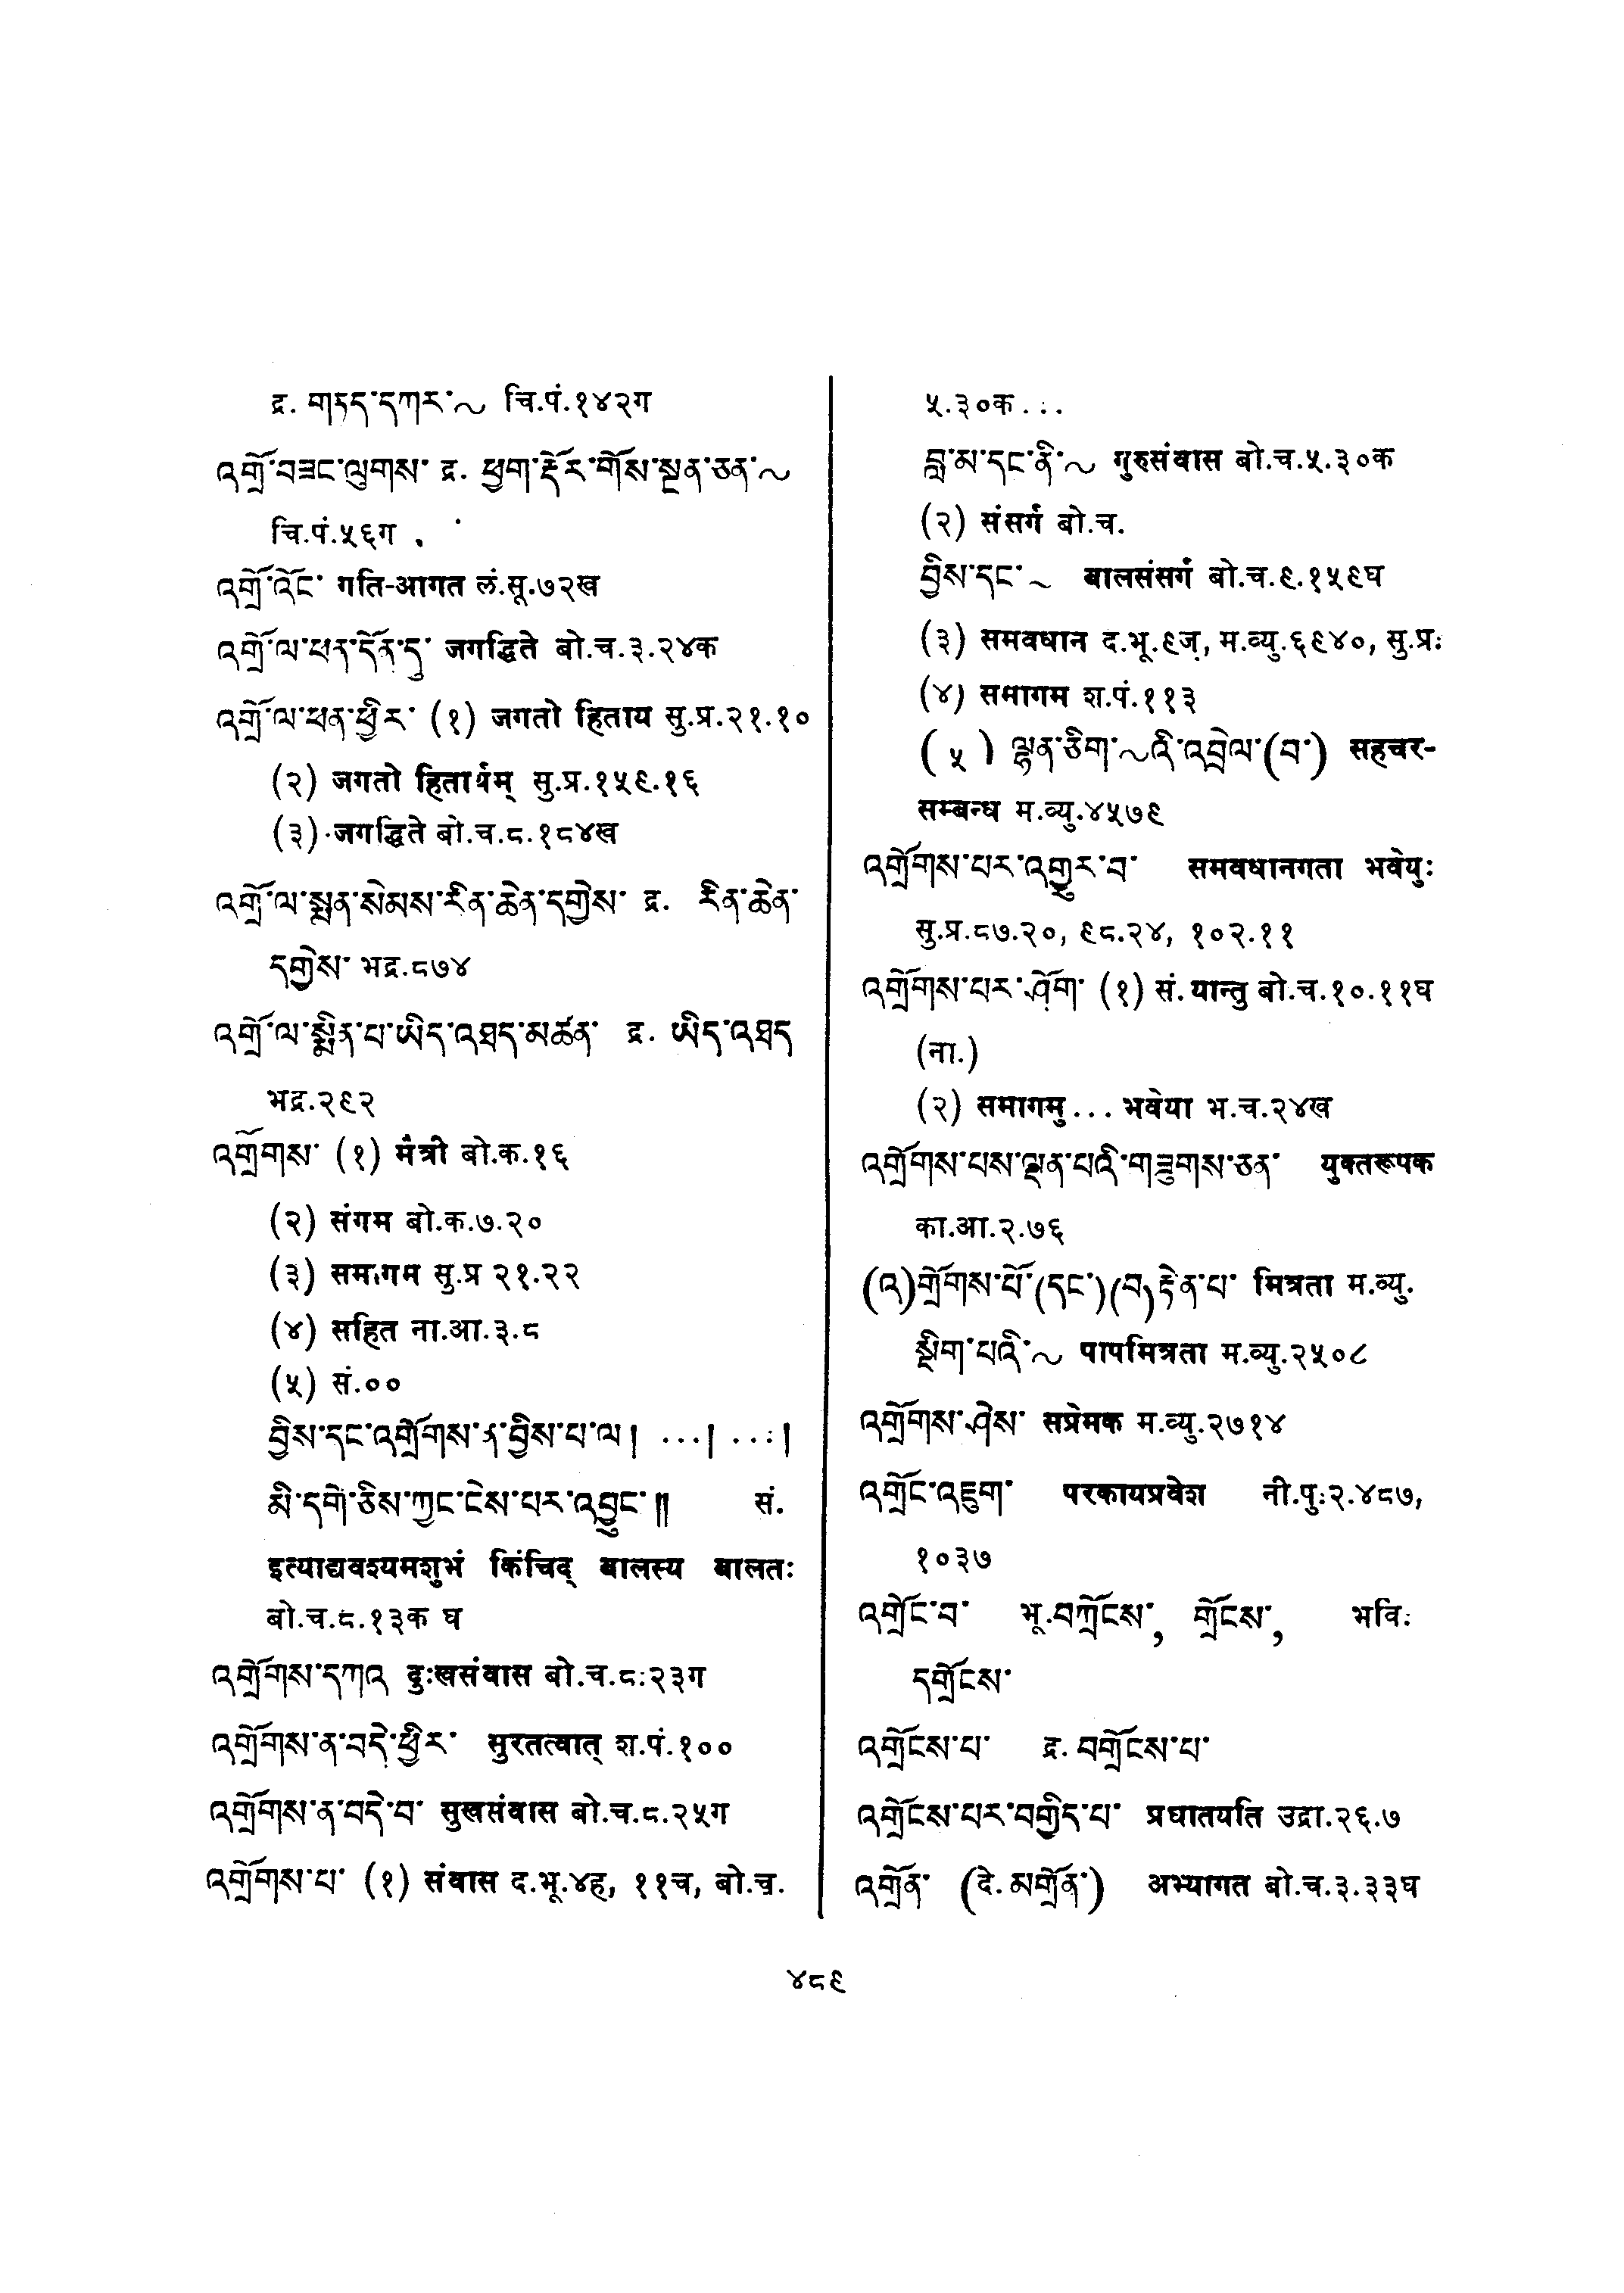 द्र. གདད་དཀར་~ चि.पं.१४२ग
འགྲོ་བཟང་ལུགས་ द्र. ཕྱག་རྡོར་གོས་སྔོན་ཅན་~
चि.पं.५६ग
འགྲོ་འོང་ गति-आगत लं.सू.७२ख
འགྲོ་ལ་ཕན་དོན་དུ་ जगद्धिते बो.च.३.२४क
འགྲོ་ལ་ཕན་ཕྱིར་ (१) जगतो हिताय सु.प्र.२१.१०
(२) जगतो हितार्थम् सु.प्र.१५९.१६
(३) जगद्धिते बो.च.८.१८४ख
འགྲོ་ལ་སྨན་སེམས་རིན་ཆེན་དགྱེས་ द्र. རིན་ཆེན་
དགྱེས་ भद्र.८७४
འགྲོ་ལ་སྨིན་པ་ཡིད་འཐད་མཚན་ द्र. ཡིད་འཐད
भद्र.२९२
འགྲོགས་ (१) मैत्री बो.क.१६
(२) संगम बो.क.७.२०
(३) समागम सु.प्र २१.२२
(४) सहित ना.आ.३.८
(५) सं.००
བྱིས་དང་འགྲོགས་ན་བྱིས་པ་ལ། ...། ...།
མི་དགེ་ཅིས་ཀྱང་ངེས་པར་འབྱུང་༎ सं.
इत्याद्यवश्यमशुभं किंचिद् बालस्य बालतः
बो.च.८.१३क घ
འགྲོགས་དཀའ दुःखसंवास बो.च.८.२३ग
འགྲོགས་ན་བདེ་ཕྱིར་ सुरतत्वात् श.पं.१००
འགྲོགས་ན་བདེ་བ་ सुखसंवास बो.च.८.२५ग
འགྲོགས་པ་ (१) संवास द.भू.४ह, ११च, बो.च.
५.३०क...
བླ་མ་དང་ནི་~ गुरुसंवास बो.च.५.३०क
(२) संसर्ग बो.च.
བྱིས་དང་~ बालसंसर्ग बो.च.९.१५९घ
(३) समवधान द.भू.९ज, म.व्यु.६९४०, सु.प्र.
(४) समागम श.पं.११३
(५) ལྷན་ཅིག་~འི་འབྲེལ་(བ་) सहचर-
सम्बन्ध म.व्यु.४५७९
འགྲོགས་པར་འགྱུར་བ་ समवधानगता भवेयुः
सु.प्र.८७.२०, ९८.२४, १०२.११
འགྲོགས་པར་ཤོག་ (१) सं.यान्तु बो.च.१०.११घ
(ना.)
(२) समागमु... भवेया भ.च.२४ख
འགྲོགས་པས་ལྡན་པའི་གཟུགས་ཅན་ युक्तरूपक
का.आ.२.७६
(འ)གྲོགས་པོ་(དང་)(བ)རྟེན་པ་ मित्रता म.व्यु.
སྡིག་པའི་~ पापमित्रता म.व्यु.२५०८
འགྲོགས་ཤེས་ सप्रेमक म.व्यु.२७१४
འགྲོང་འཇུག་ परकायप्रवेश नी.पु.२.४८७,
१०३७
འགྲོང་བ་ भू.བཀྲོངས་, གྲོངས་, भवि.
དགྲོངས་
འགྲོངས་པ་ द्र. བགྲོངས་པ་
འགྲོངས་པར་བགྱིད་པ་ प्रघातयति उद्रा.२६.७
འགྲོན་ (दे.མགྲོན་) अभ्यागत बो.च.३.३३घ
४८९